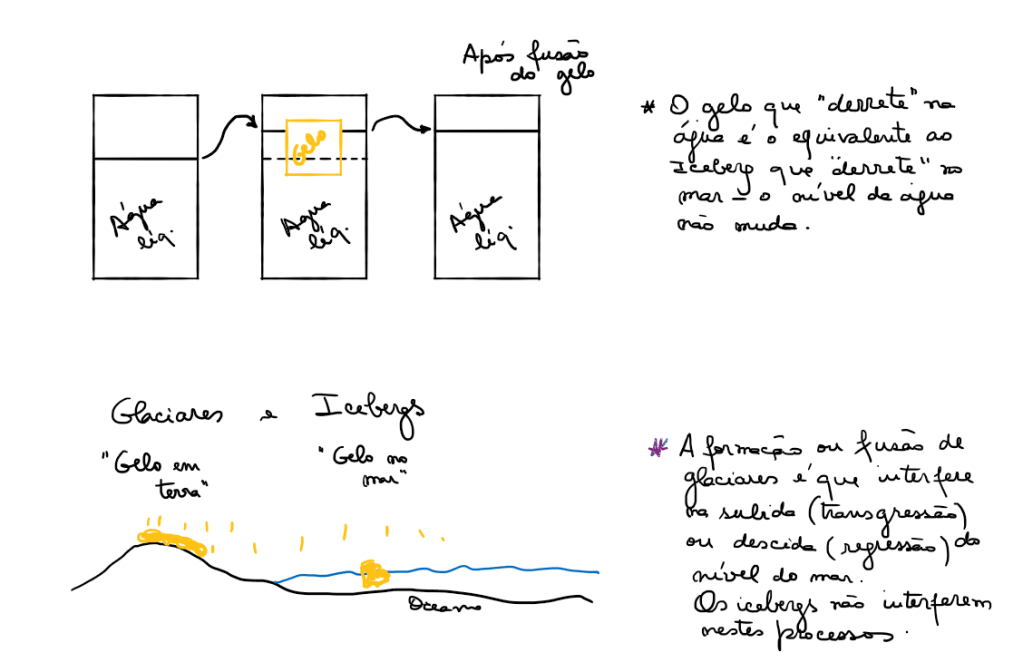 Após fusão
do gelo
Água
líq.
Gelo
Água
líq.
Água
líq.
* O gelo que "derrete" na
água é o equivalente ao
Iceberg que "derrete" no
mar – o nível da água
não muda.
Glaciares e Icebergs
"Gelo em
terra"
"Gelo no
mar"
Oceano
* A formação ou fusão de
glaciares é que interfere
na subida (transgressão)
ou descida (regressão) do
nível do mar.
Os icebergs não interferem
nestes processos.